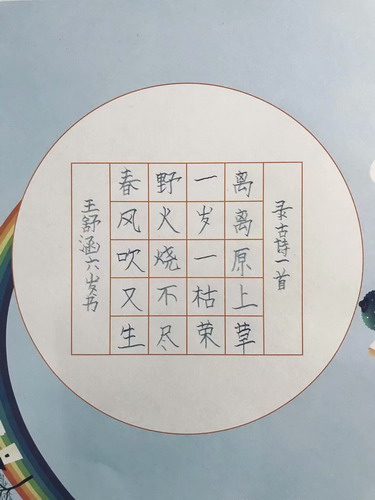 录古诗一首
离离原上草
一岁一枯荣
野火烧不尽
春风吹又生
王舒涵六岁书